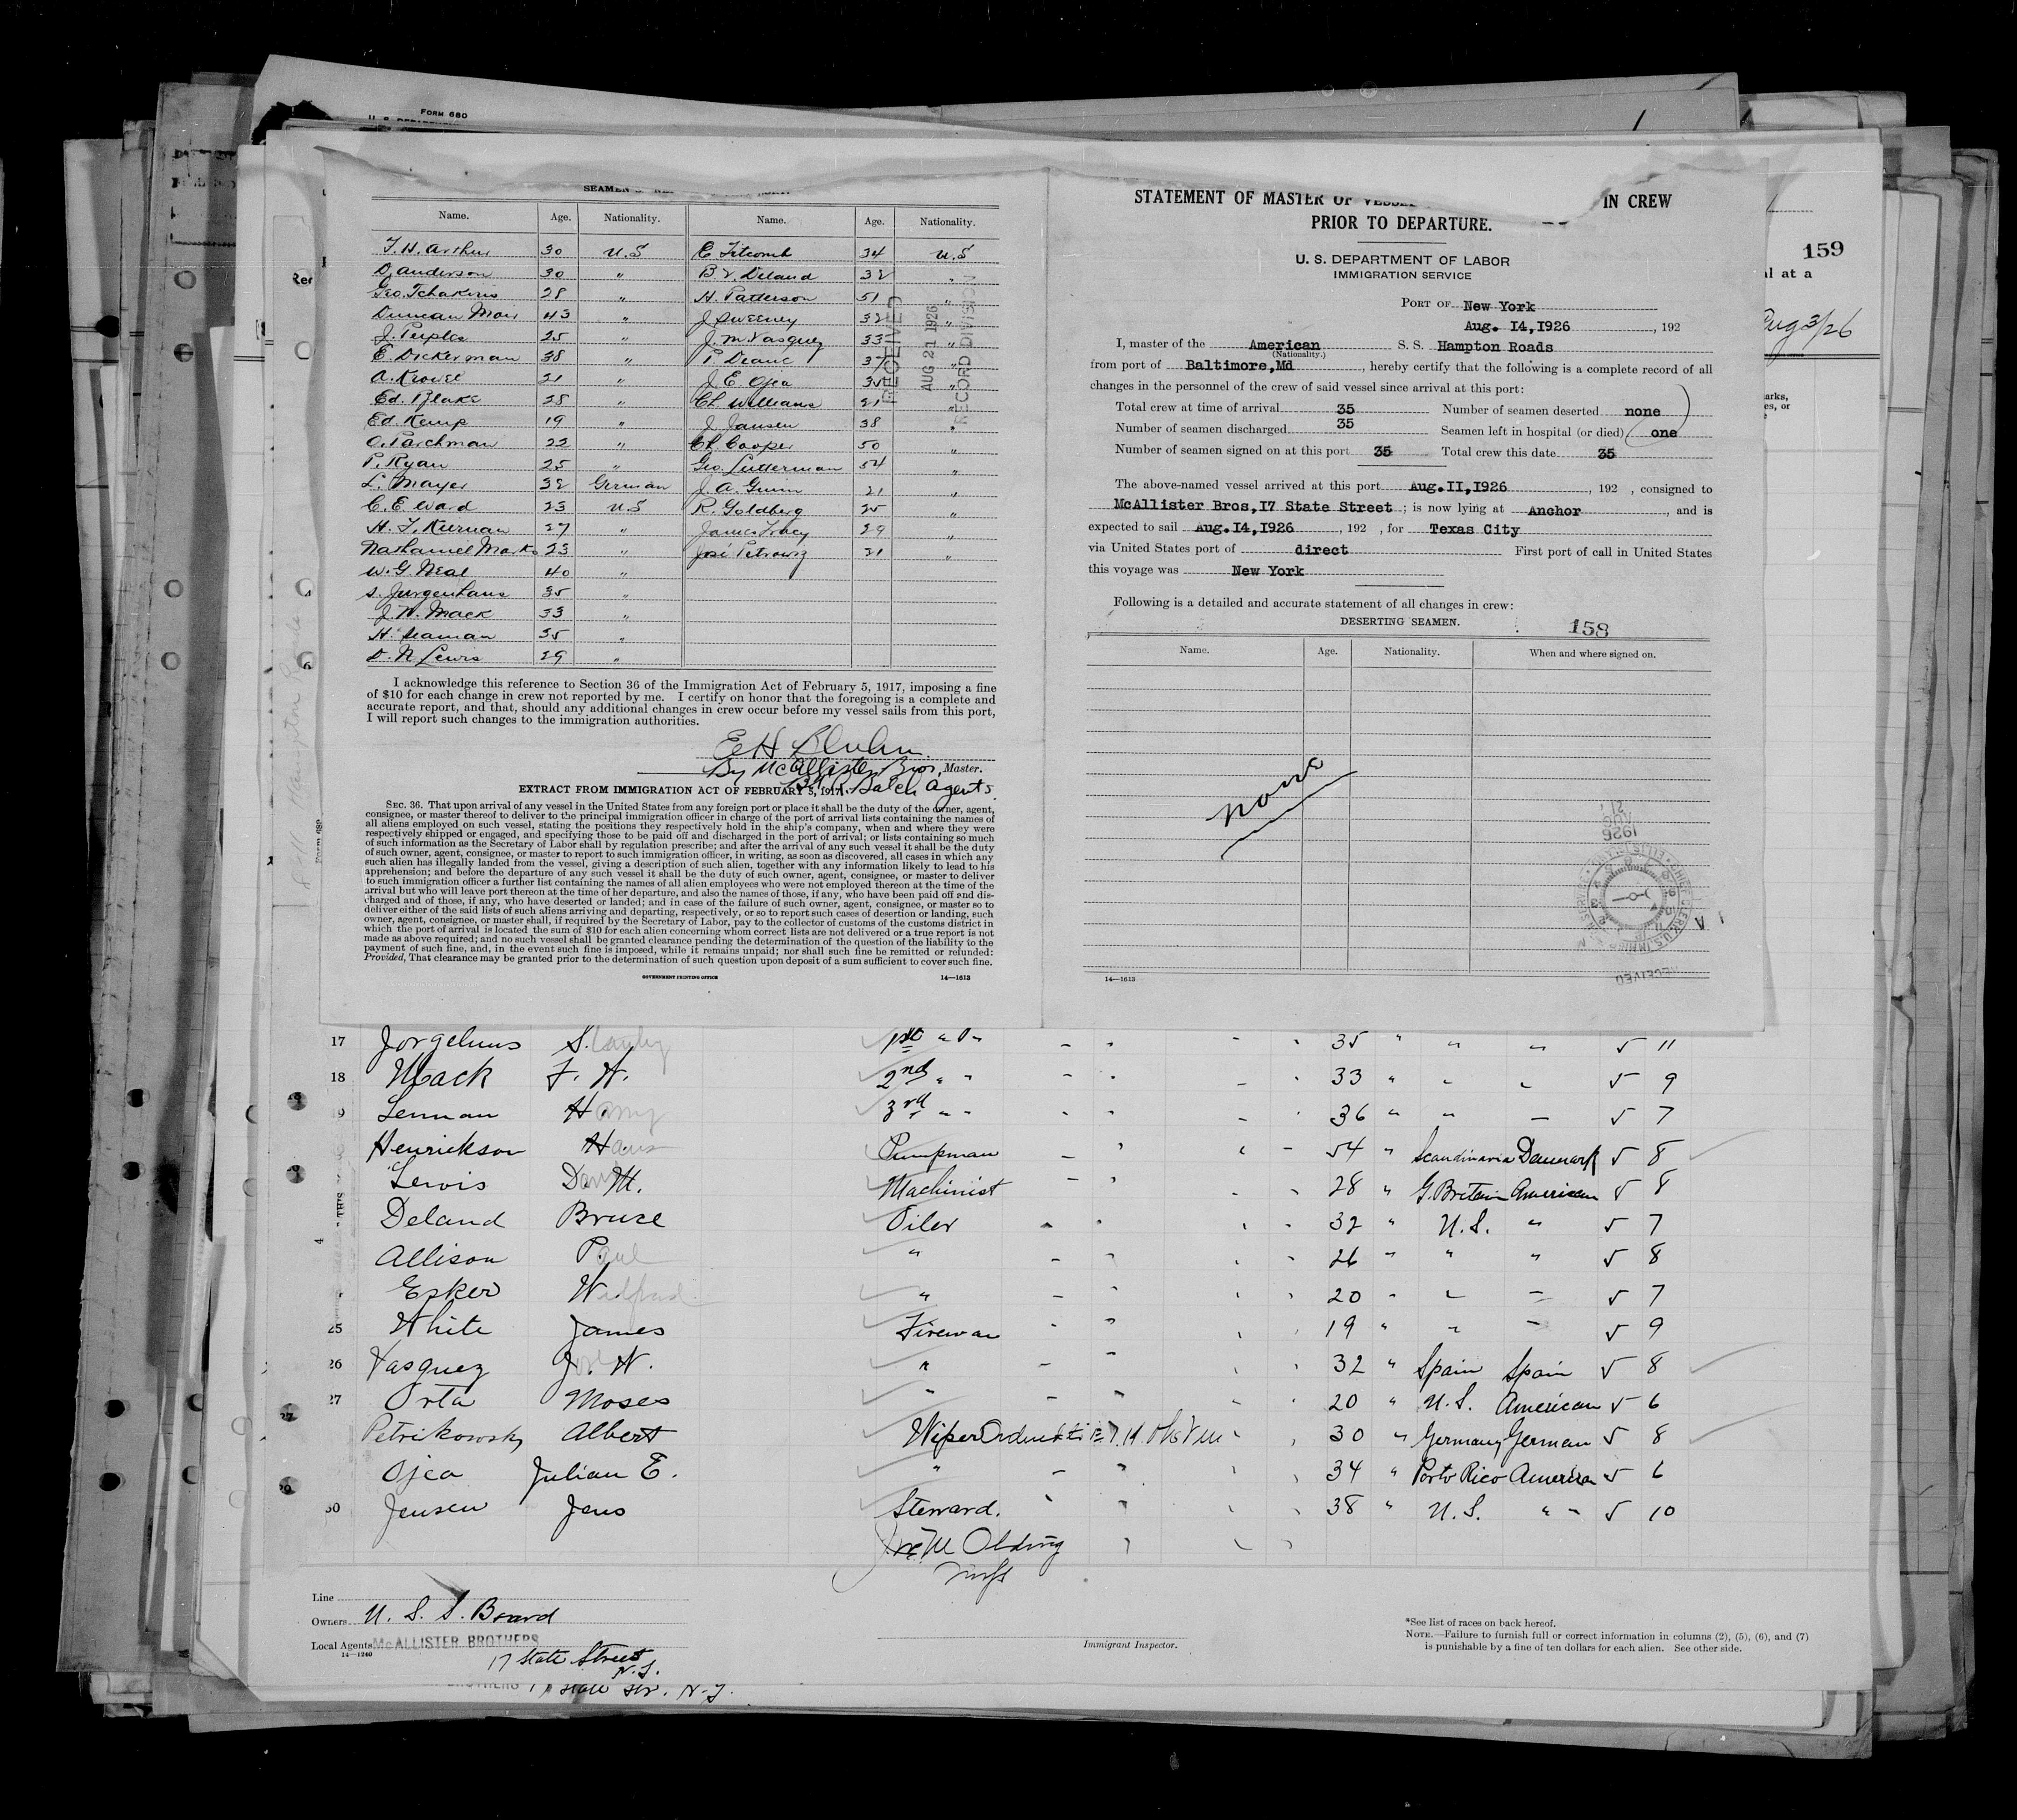 FORM 680
159
Aug 3/26
SEAMEN'S
Name. Age. Nationality. Name. Age. Nationality.
T. H. Arthur 30 U.S C Titcomb 34 U.S
D. Anderson 30 " B V. Deland 32 "
Geo. Tchakiris 28 " H. Patterson 51 "
Duncan 43 " J Sweeney 32 "
J. Peeples 25 " J. M Vasquez 33 "
E. Dickerman 38 " P. Deane 37 "
A. Krowel 21 " J. E. Ojea 35 "
Ed. Blake 28 " Ch Williams 21 "
Ed. Kemp 19 " J. Jansen 38 "
O. Parchman 22 " Ch Cooper 50 "
P. Ryan 25 " Geo. Lutterman 54 "
L. Mayer 32 German J. A. 21 "
C. E. Ward 23 U.S R. Goldberg 25 "
H. J. Kiernan 27 " James 29 "
Nathaniel Marks 23 " José 21 "
W. G. Neal 40 "
S. 35 "
J. W. Mack 33 "
H. Seaman 35 "
D. N. Lewis 29 "
RECEIVED
AUG 21 1926
RECORD DIVISION
I acknowledge this reference to Section 36 of the Immigration Act of February 5, 1917, imposing a fine
of $10 for each change in crew not reported by me. I certify on honor that the foregoing is a complete and
accurate report, and that, should any additional changes in crew occur before my vessel sails from this port,
I will report such changes to the immigration authorities.
E H Bluhm
By McAllister Bros, Master.
Agents
EXTRACT FROM IMMIGRATION ACT OF FEBRUARY 5, 1917.
SEC. 36. That upon arrival of any vessel in the United States from any foreign port or place it shall be the duty of the owner, agent,
consignee, or master thereof to deliver to the principal immigration officer in charge of the port of arrival lists containing the names of
all aliens employed on such vessel, stating the positions they respectively hold in the ship's company, when and where they were
respectively shipped or engaged, and specifying those to be paid off and discharged in the port of arrival; or lists containing so much
of such information as the Secretary of Labor shall by regulation prescribe; and after the arrival of any such vessel it shall be the duty
of such owner, agent, consignee, or master to report to such immigration officer, in writing, as soon as discovered, all cases in which any
such alien has illegally landed from the vessel, giving a description of such alien, together with any information likely to lead to his
apprehension; and before the departure of any such vessel it shall be the duty of such owner, agent, consignee, or master to deliver
to such immigration officer a further list containing the names of all alien employees who were not employed thereon at the time of the
arrival but who will leave port thereon at the time of her departure, and also the names of those, if any, who have been paid off and dis-
charged and of those, if any, who have deserted or landed; and in case of the failure of such owner, agent, consignee, or master so to
deliver either of the said lists of such aliens arriving and departing, respectively, or so to report such cases of desertion or landing, such
owner, agent, consignee, or master shall, if required by the Secretary of Labor, pay to the collector of customs of the customs district in
which the port of arrival is located the sum of $10 for each alien concerning whom correct lists are not delivered or a true report is not
made as above required; and no such vessel shall be granted clearance pending the determination of the question of the liability to the
payment of such fine, and, in the event such fine is imposed, while it remains unpaid; nor shall such fine be remitted or refunded:
Provided, That clearance may be granted prior to the determination of such question upon deposit of a sum sufficient to cover such fine.
GOVERNMENT PRINTING OFFICE 14—1613
STATEMENT OF MASTER OF VESSEL IN CREW
PRIOR TO DEPARTURE.
U. S. DEPARTMENT OF LABOR
IMMIGRATION SERVICE
PORT OF New York
Aug. I4,I926, 192
I, master of the American S. S. Hampton Roads
(Nationality.)
from port of Baltimore,Md, hereby certify that the following is a complete record of all
changes in the personnel of the crew of said vessel since arrival at this port:
Total crew at time of arrival 35 Number of seamen deserted none
Number of seamen discharged 35 Seamen left in hospital (or died) one
Number of seamen signed on at this port 35 Total crew this date 35
The above-named vessel arrived at this port Aug.II,I926, 192 , consigned to
McAllister Bros,I7 State Street; is now lying at Anchor, and is
expected to sail Aug.I4,I926, 192 , for Texas City
via United States port of direct First port of call in United States
this voyage was New York
Following is a detailed and accurate statement of all changes in crew:
DESERTING SEAMEN. 158
Name. Age. Nationality. When and where signed on.
none
14—1613
17 S. 1st " " 35 " " " 5 11
18 Mack J. W. 2nd " " 33 " " " 5 9
19 Harry 3rd " " 36 " " 5 7
Henrickson Hans Pumpman 54 " Scandinavia Denmark 5 8
Lewis Dan M. Machinist 28 " G. Britain American 5 8
Deland Bruce Oiler 32 " U.S. " 5 7
Allison Paul " 26 " " " 5 8
Esker Wilfred " 20 " " 5 7
25 White James Fireman 19 " " 5 9
26 Vasquez J. W. " 32 " Spain Spain 5 8
27 Orta Moses " 20 " U.S. American 5 6
Petrikowsky Albert Wiper 30 " Germany German 5 8
Ojea Julian E. " 34 " Porto Rico American 5 6
30 Jensen Jens Steward. 38 " U.S. " " 5 10
Line
Owners U. S. S. Board
Local Agents McALLISTER BROTHERS
14—1240
17 State Street
N.Y.
Immigrant Inspector.
*See list of races on back hereof.
NOTE.—Failure to furnish full or correct information in columns (2), (5), (6), and (7)
is punishable by a fine of ten dollars for each alien. See other side.